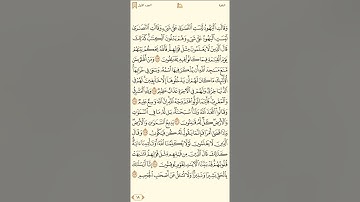 البقرة
الجزء الأول
وَقَالَتِ ٱلْيَهُودُ لَيْسَتِ ٱلنَّصَٰرَىٰ عَلَىٰ شَىْءٍ وَقَالَتِ ٱلنَّصَٰرَىٰ
لَيْسَتِ ٱلْيَهُودُ عَلَىٰ شَىْءٍ وَهُمْ يَتْلُونَ ٱلْكِتَٰبَ كَذَٰلِكَ
قَالَ ٱلَّذِينَ لَا يَعْلَمُونَ مِثْلَ قَوْلِهِمْ فَٱللَّهُ يَحْكُمُ بَيْنَهُمْ
يَوْمَ ٱلْقِيَٰمَةِ فِيمَا كَانُوا۟ فِيهِ يَخْتَلِفُونَ وَمَنْ أَظْلَمُ مِمَّن
مَّنَعَ مَسَٰجِدَ ٱللَّهِ أَن يُذْكَرَ فِيهَا ٱسْمُهُۥ وَسَعَىٰ فِى خَرَابِهَآ
أُو۟لَٰٓئِكَ مَا كَانَ لَهُمْ أَن يَدْخُلُوهَآ إِلَّا خَآئِفِينَ لَهُمْ فِى
ٱلدُّنْيَا خِزْىٌ وَلَهُمْ فِى ٱلْءَاخِرَةِ عَذَابٌ عَظِيمٌ وَلِلَّهِ ٱلْمَشْرِقُ
وَٱلْمَغْرِبُ فَأَيْنَمَا تُوَلُّوا۟ فَثَمَّ وَجْهُ ٱللَّهِ إِنَّ ٱللَّهَ وَٰسِعٌ عَلِيمٌ
وَقَالُوا۟ ٱتَّخَذَ ٱللَّهُ وَلَدًا سُبْحَٰنَهُۥ بَل لَّهُۥ مَا فِى ٱلسَّمَٰوَٰتِ
وَٱلْأَرْضِ كُلٌّ لَّهُۥ قَٰنِتُونَ بَدِيعُ ٱلسَّمَٰوَٰتِ وَٱلْأَرْضِ
وَإِذَا قَضَىٰٓ أَمْرًا فَإِنَّمَا يَقُولُ لَهُۥ كُن فَيَكُونُ وَقَالَ
ٱلَّذِينَ لَا يَعْلَمُونَ لَوْلَا يُكَلِّمُنَا ٱللَّهُ أَوْ تَأْتِينَآ ءَايَةٌ
كَذَٰلِكَ قَالَ ٱلَّذِينَ مِن قَبْلِهِم مِّثْلَ قَوْلِهِمْ تَشَٰبَهَتْ
قُلُوبُهُمْ قَدْ بَيَّنَّا ٱلْءَايَٰتِ لِقَوْمٍ يُوقِنُونَ إِنَّآ أَرْسَلْنَٰكَ
بِٱلْحَقِّ بَشِيرًا وَنَذِيرًا وَلَا تُسْـَٔلُ عَنْ أَصْحَٰبِ ٱلْجَحِيمِ
١٨